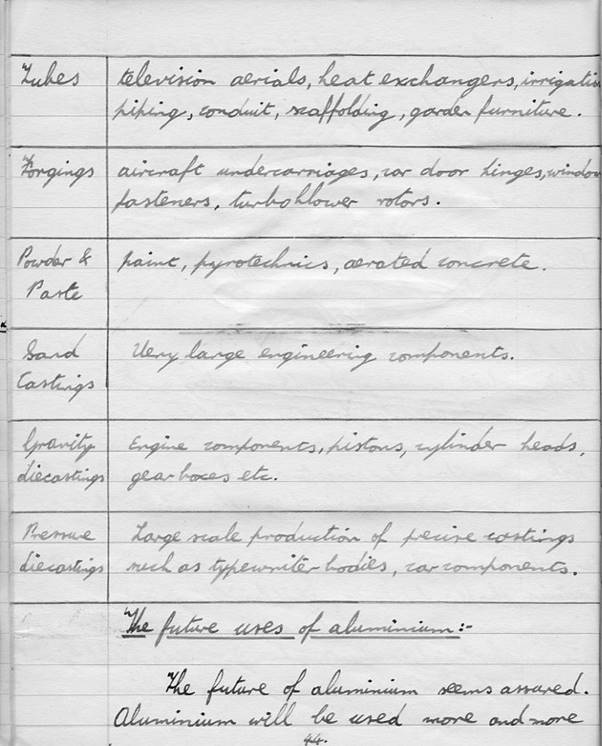 Tubes television aerials, heat exchangers, irrigation
piping, conduit, scaffolding, garden furniture.
Forgings aircraft undercarriages, car door hinges, window
fasteners, turboblower rotors.
Powder & paint, pyrotechnics, aerated concrete.
Paste
Sand Very large engineering components.
Castings
Gravity Engine components, pistons, cylinder heads,
diecastings gear boxes etc.
Pressure Large scale production of precise castings
diecastings such as typewriter bodies, car components.
The future uses of aluminium:-
The future of aluminium seems assured.
Aluminium will be used more and more
44.